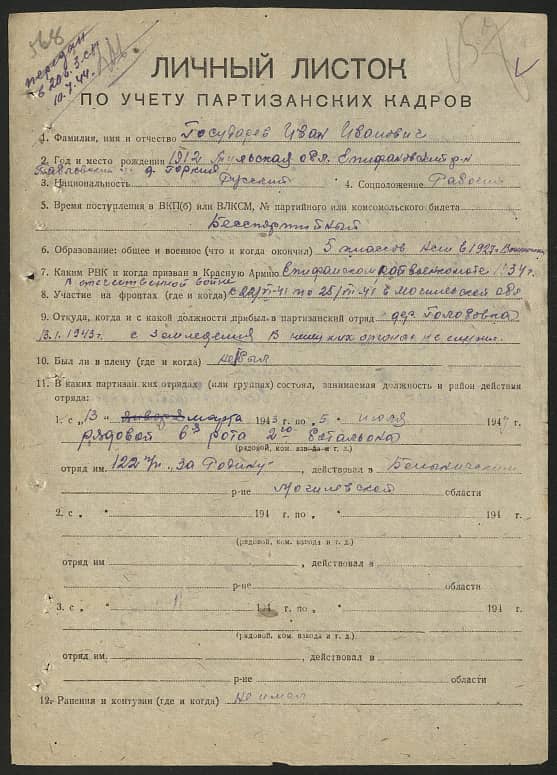 568
передан
в 206 з.сп
10.7.44.
ЛИЧНЫЙ ЛИСТОК
ПО УЧЕТУ ПАРТИЗАНСКИХ КАДРОВ
1. Фамилия, имя и отчество Государев Иван Иванович
2. Год и место рождения 1912 Тульская обл. Епифановский р-н
д. Горки
3. Национальность Русский 4. Соцположение Рабочий
5. Время поступления в ВКП(б) или ВЛКСМ, № партийного или комсомольского билета
Беспартийный
6. Образование: общее и военное (что и когда окончил) 5 классов НСШ в 1927г.
7. Каким РВК и когда призван в Красную Армию Епифанском райвоенкомате 1934г.
в отечественной войне
8. Участие на фронтах (где и когда) с 22/VI-41 по 28/VII-41 в Могилевской обл
9. Откуда, когда и с какой должности прибыл в партизанский отряд дер. Голововка
13.1.1943г. с Земледелия В немецких органах не служил.
10. Был ли в плену (где и когда) не был
11. В каких партизанских отрядах (или группах) состоял, занимаемая должность и район действия
отряда:
1. с „ 13 " января марта 1943 г. по „ 5 " июля 1944 г.
рядовой 6я рота 2го батальона
(рядовой, ком. взвода и т. д.)
отряд им. 122 п/п „За Родину", действовал в Белыничском
р-не Могилевской области
2. с „ " 194 г. по „ " 194 г.
(рядовой, ком. взвода и т. д.)
отряд им , действовал в
р-не области
3. с „ " 194 г. по „ " 194 г.
(рядовой, ком. взвода и т. д.)
отряд им. , действовал в
р-не области
12. Ранения и контузии (где и когда) не имел